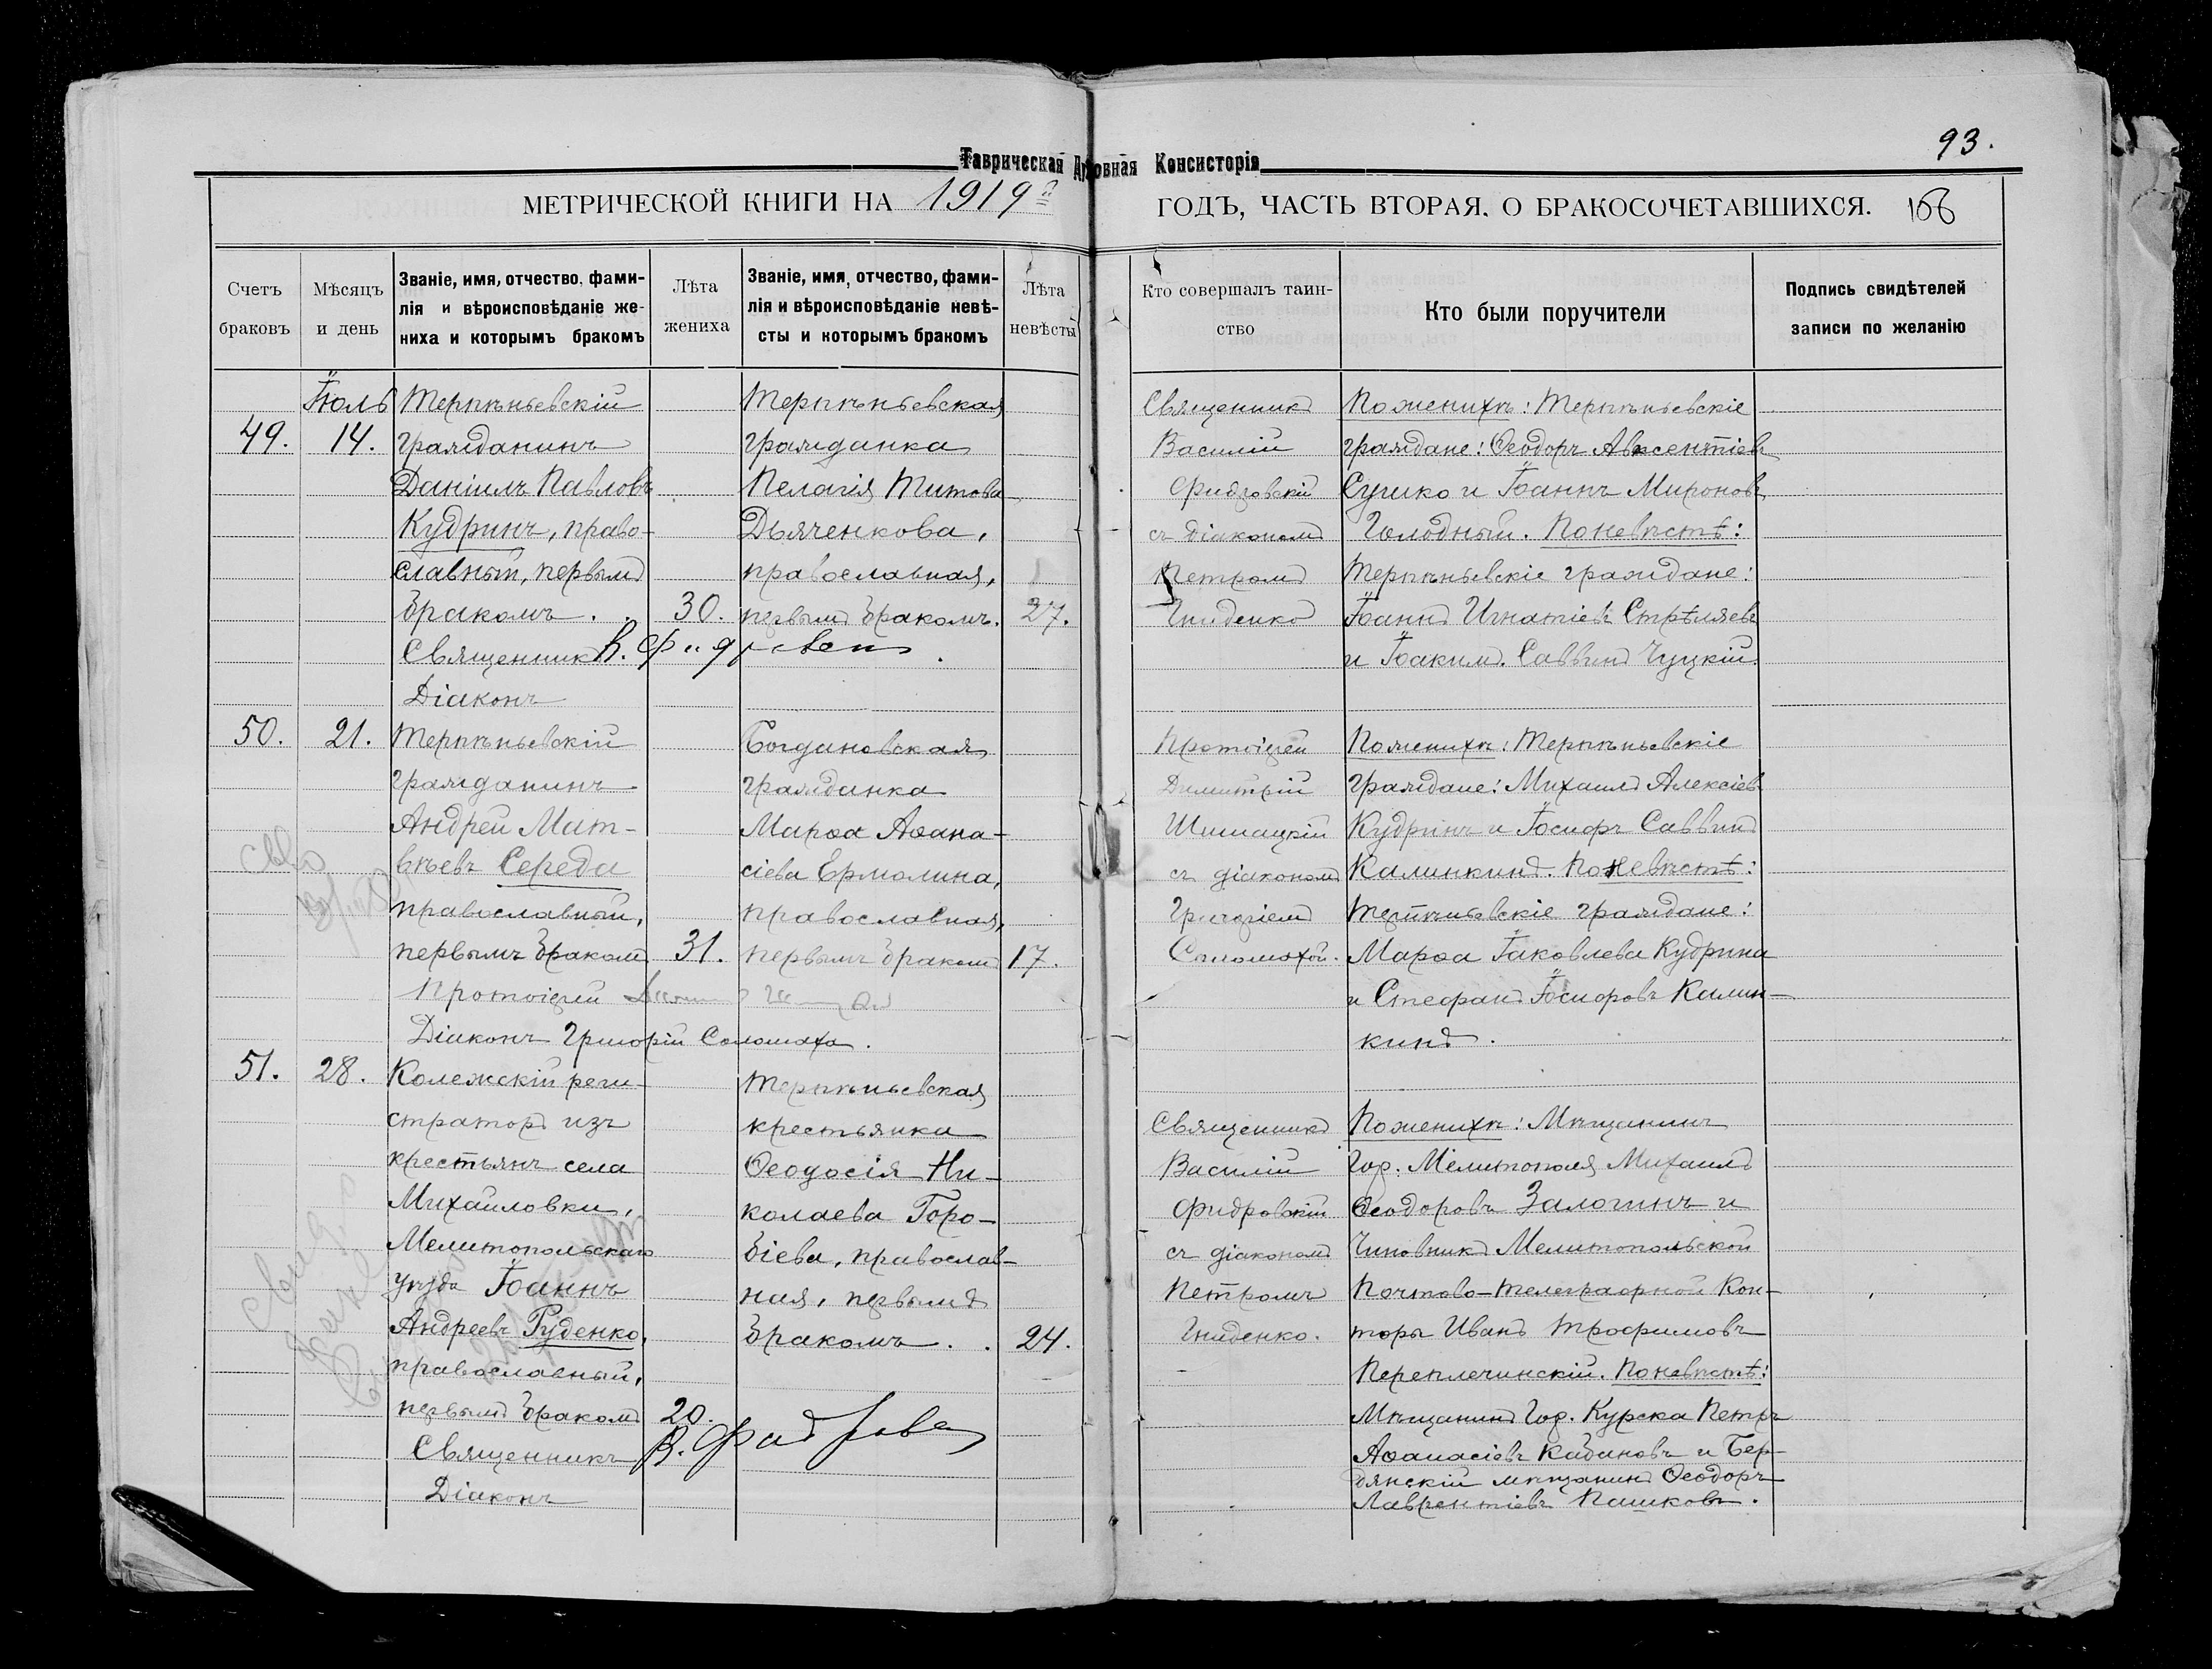 93.
Таврическая Духовная Консисторія
МЕТРИЧЕСКОЙ КНИГИ НА 1919 ГОДЪ, ЧАСТЬ ВТОРАЯ. О БРАКОСОЧЕТАВШИХСЯ. 166
Счетъ
браковъ
Мѣсяцъ
и день
Званіе, имя, отчество, фами-
лія и вѣроисповѣданіе же-
ниха и которымъ бракомъ
Лѣта
жениха
Званіе, имя, отчество, фами-
лія и вѣроисповѣданіе невѣ-
сты и которымъ бракомъ
Лѣта
невѣсты
Кто совершалъ таин-
ство
Кто были поручители
Подпись свидѣтелей
записи по желанію
49.
Іюль
14.
Терпѣньевскій
гражданинъ
Даніилъ Павловъ
Кудринъ, право-
славный, первымъ
бракомъ. .
30.
Священникъ В.
Діаконъ
Терпѣньевская
гражданка
Пелагія Титова
Дьяченкова,
православная,
первымъ бракомъ.
27.
Священникъ
Василій
Фидровскій
съ діакономъ
Петромъ
Гниденко
По женихѣ: Терпѣньевскіе
граждане: Ѳеодоръ Авксентіевъ
Сушко и Іоаннъ Мироновъ
Голодный. По невѣстѣ:
Терпѣньевскіе граждане:
Іоаннъ Игнатіевъ Стрѣляевъ
и Іоакимъ Саввинъ Чуцкій.
50.
21.
Терпѣньевскій
гражданинъ
Андрей Мат-
вѣевъ Середа
православный,
первымъ бракомъ
31.
Протоіерей
Діаконъ Григорій Соломаха.
Богдановская
гражданка
Марѳа Аѳана-
сіева Ермолина,
православная,
первымъ бракомъ
17.
Протоіерей
Димитрій
Шишацкій
съ діакономъ
Григоріемъ
Соломахой.
По женихѣ: Терпѣньевскіе
граждане: Михаилъ Алексіевъ
Кудринъ и Іосифъ Саввинъ
Калинкинъ. По невѣстѣ:
Терпѣньевскіе граждане:
Марѳа Іаковлева Кудрина
и Стефанъ Іосифовъ Калин-
кинъ.
51.
28.
Колежскій реги-
страторъ изъ
крестьянъ села
Михайловки,
Мелитопольскаго
уѣзда Іоаннъ
Андреевъ Руденко,
православный,
первымъ бракомъ
20.
Священникъ В. Фидровс
Діаконъ
Терпѣньевская
крестьянка
Ѳеодосія Ни-
колаева Горо-
біева, православ-
ная, первымъ
бракомъ. .
24.
Священникъ
Василій
Фидровскій
съ діакономъ
Петромъ
Гниденко.
По женихѣ: Мѣщанинъ
гор. Мелитополя Михаилъ
Ѳеодоровъ Залогинъ и
Чиновникъ Мелитопольской
Почтово-телеграфной Кон-
торы Иванъ Трофимовъ
Переплечинскій. По невѣстѣ:
Мѣщанинъ гор. Курска Петръ
Аѳанасіевъ Кабановъ и Бер-
дянскій мѣщанинъ Ѳеодоръ
Лаврентіевъ Пашковъ.